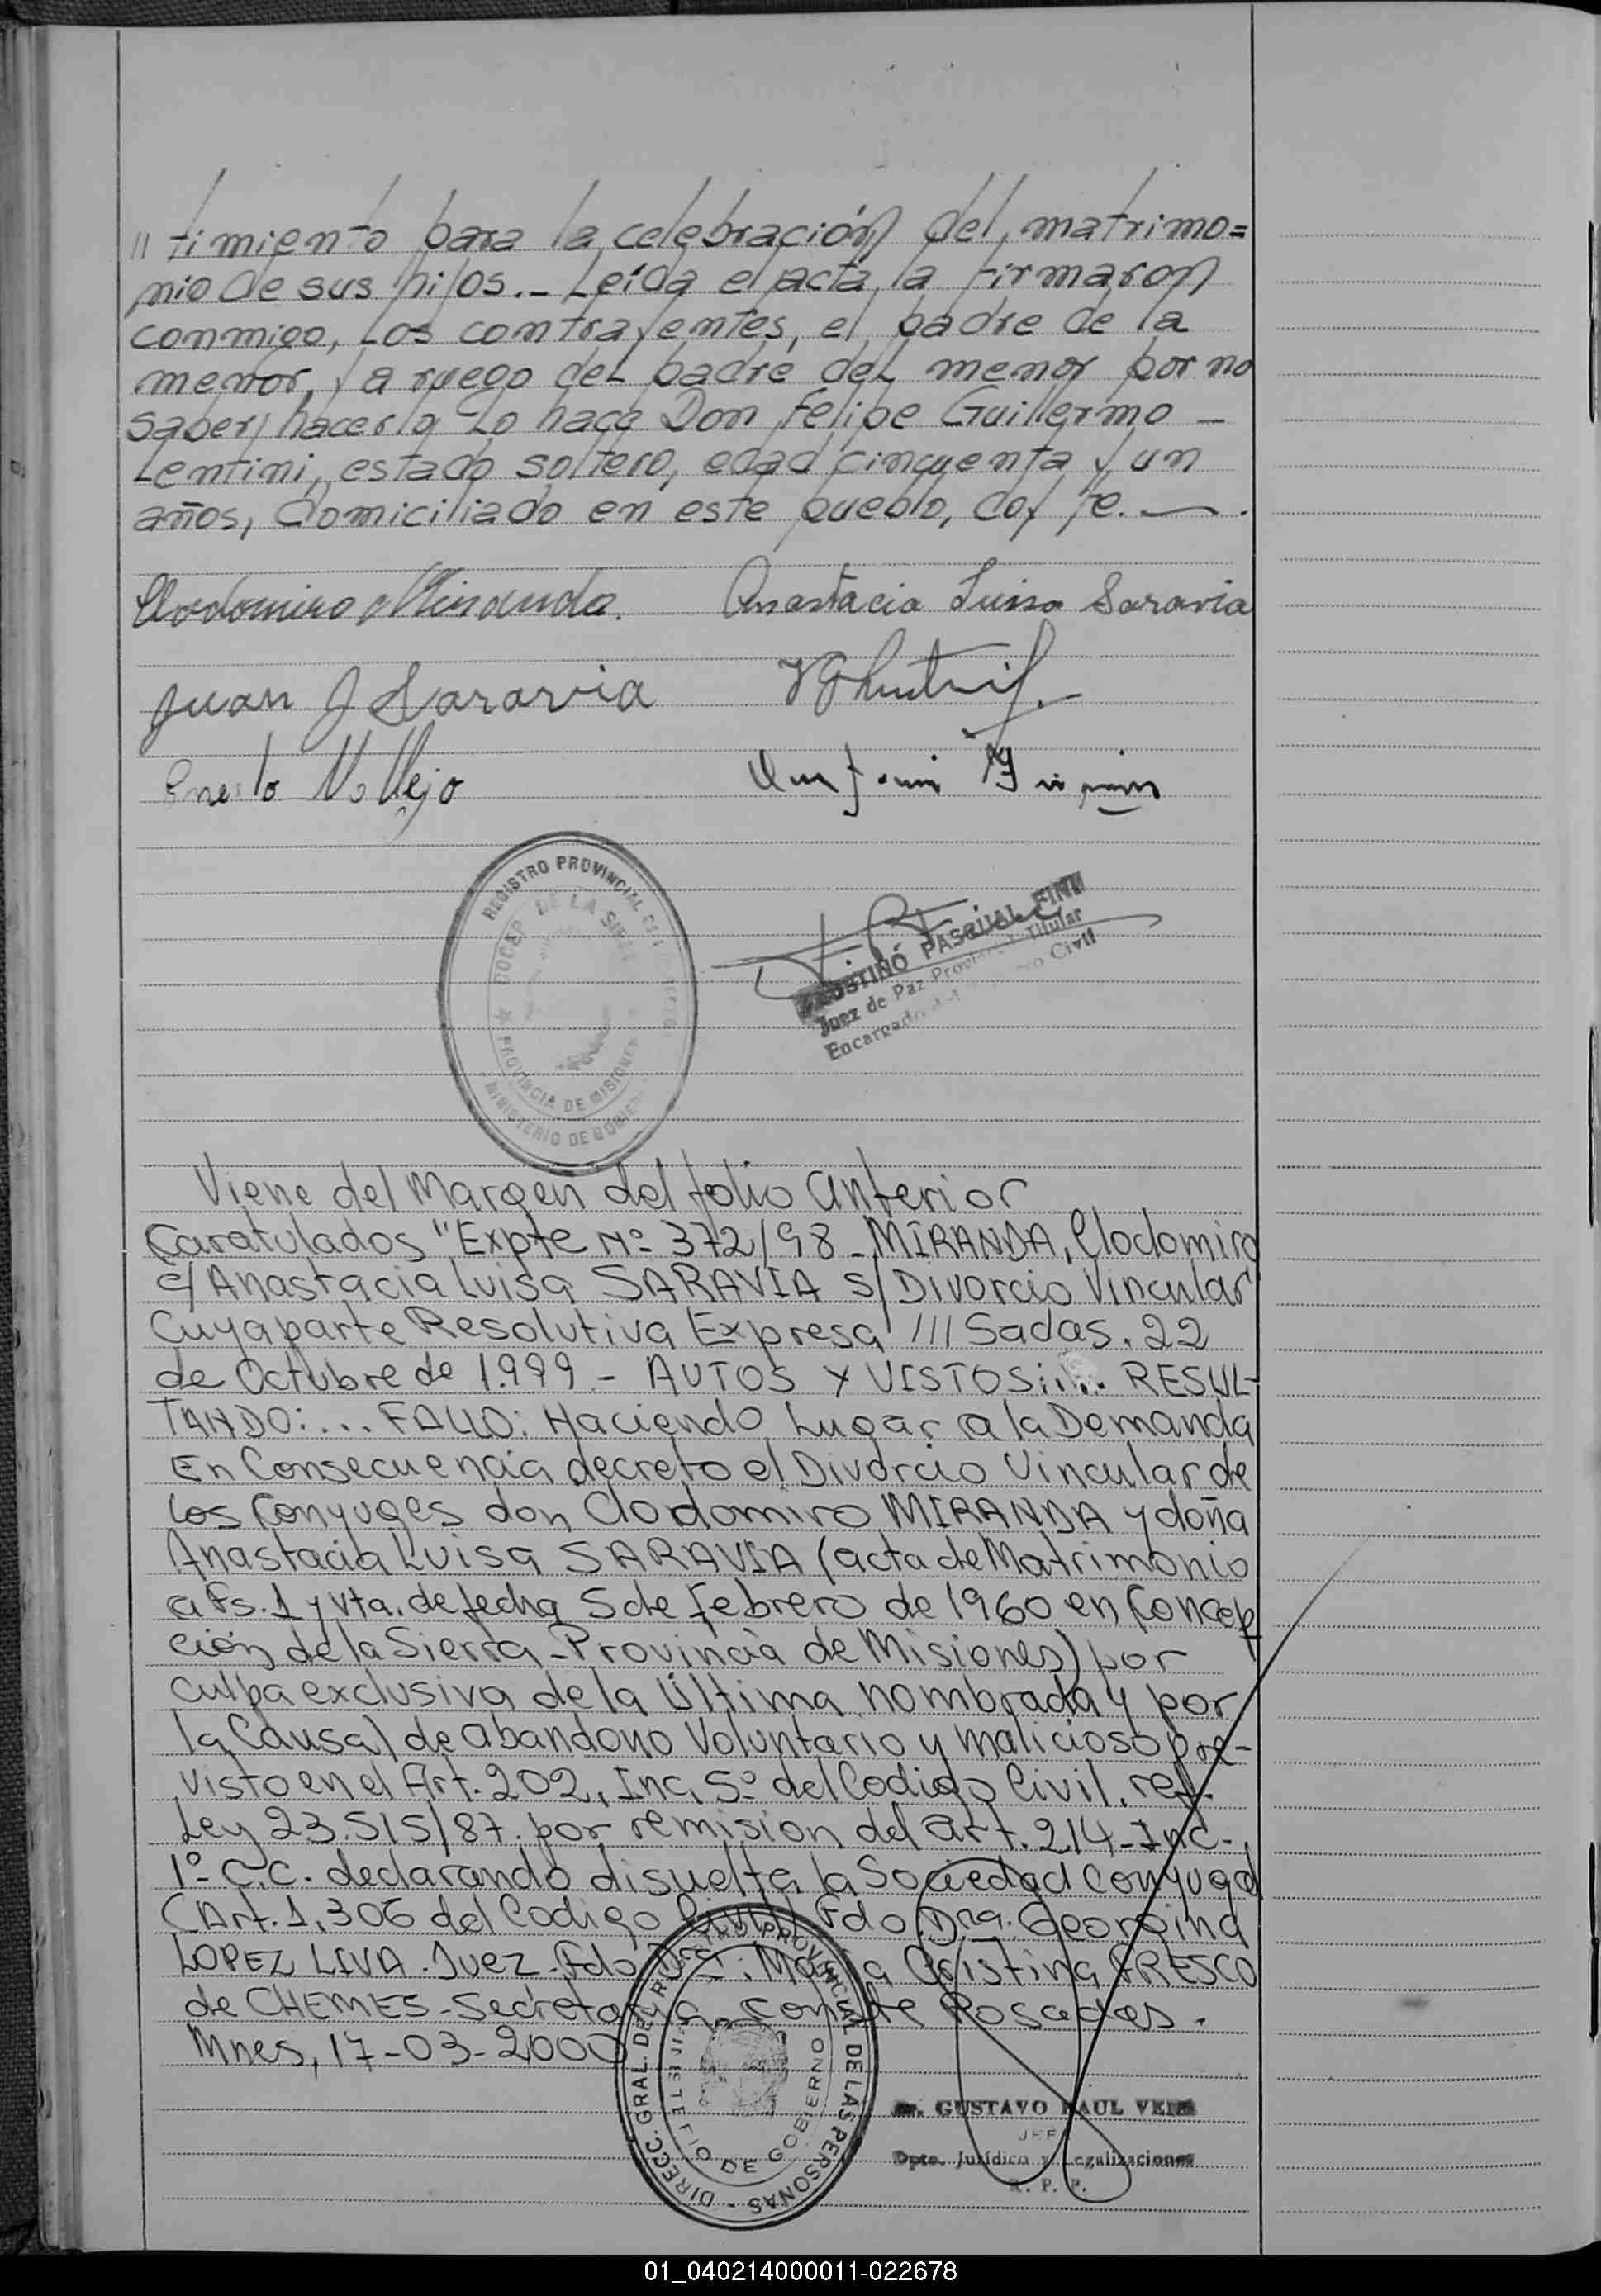 // timiento para la celebración del matrimo=
nio de sus hijos.- Leída el acta, la firmaron
conmigo, Los contrayentes, el padre de la
menor, y a ruego del padre del menor por no
saber hacerlo Lo hace Don Felipe Guillermo -
Lentini, estado soltero, edad cincuenta y un
años, domiciliado en este pueblo, doy fe. —.
Clodomiro Miranda. Anastacia Luisa Saravia
Juan J Saravia
Vallejo
REGISTRO PROVINCIAL
CONCEP. DE LA SIERRA
PROVINCIA DE MISIONES
MINISTERIO DE GOBIERNO
PASCUAL FINI
Juez de Paz Titular
Encargado Civil
Viene del Margen del folio anterior
Caratulados "Expte Nº 372/98 - MIRANDA, Clodomiro
c/ Anastacia Luisa SARAVIA S/ Divorcio Vincular
Cuya parte Resolutiva Expresa /// Sadas, 22
de Octubre de 1.999 - AUTOS Y VISTOS:... RESUL-
TANDO:... FALLO: Haciendo Lugar a la Demanda
En Consecuencia decreto el Divorcio Vincular de
los Conyuges don Clodomiro MIRANDA y doña
Anastacia Luisa SARAVIA (acta de Matrimonio
a Fs. 1 y Vta. de fecha 5 de Febrero de 1960 en Concep
ción de la Sierra - Provincia de Misiones) por
culpa exclusiva de la Última nombrada y por
la Causal de abandono Voluntario y malicioso pre-
visto en el Art. 202, Inc. 5º del Codigo Civil, ref.
Ley 23.515/87. por remision del art. 214 - Inc -
1º C.C. declarando disuelta la Sociedad Conyugal
(Art. 1.306 del Codigo Civil) Fdo. Dra. Georgina
LOPEZ LIVA. Juez. Fdo Dra. Maria Cristina FRESCO
de CHEMES - Secretaria. Conste Posadas.
Mnes, 17-03-2000
DIRECC. GRAL. DEL REGISTRO PROVINCIAL DE LAS PERSONAS
DE GOBIERNO
Dr. GUSTAVO RAUL
JEFE
Dpto. Jurídico y Legalizaciones
R. P. P.
01_040214000011-022678